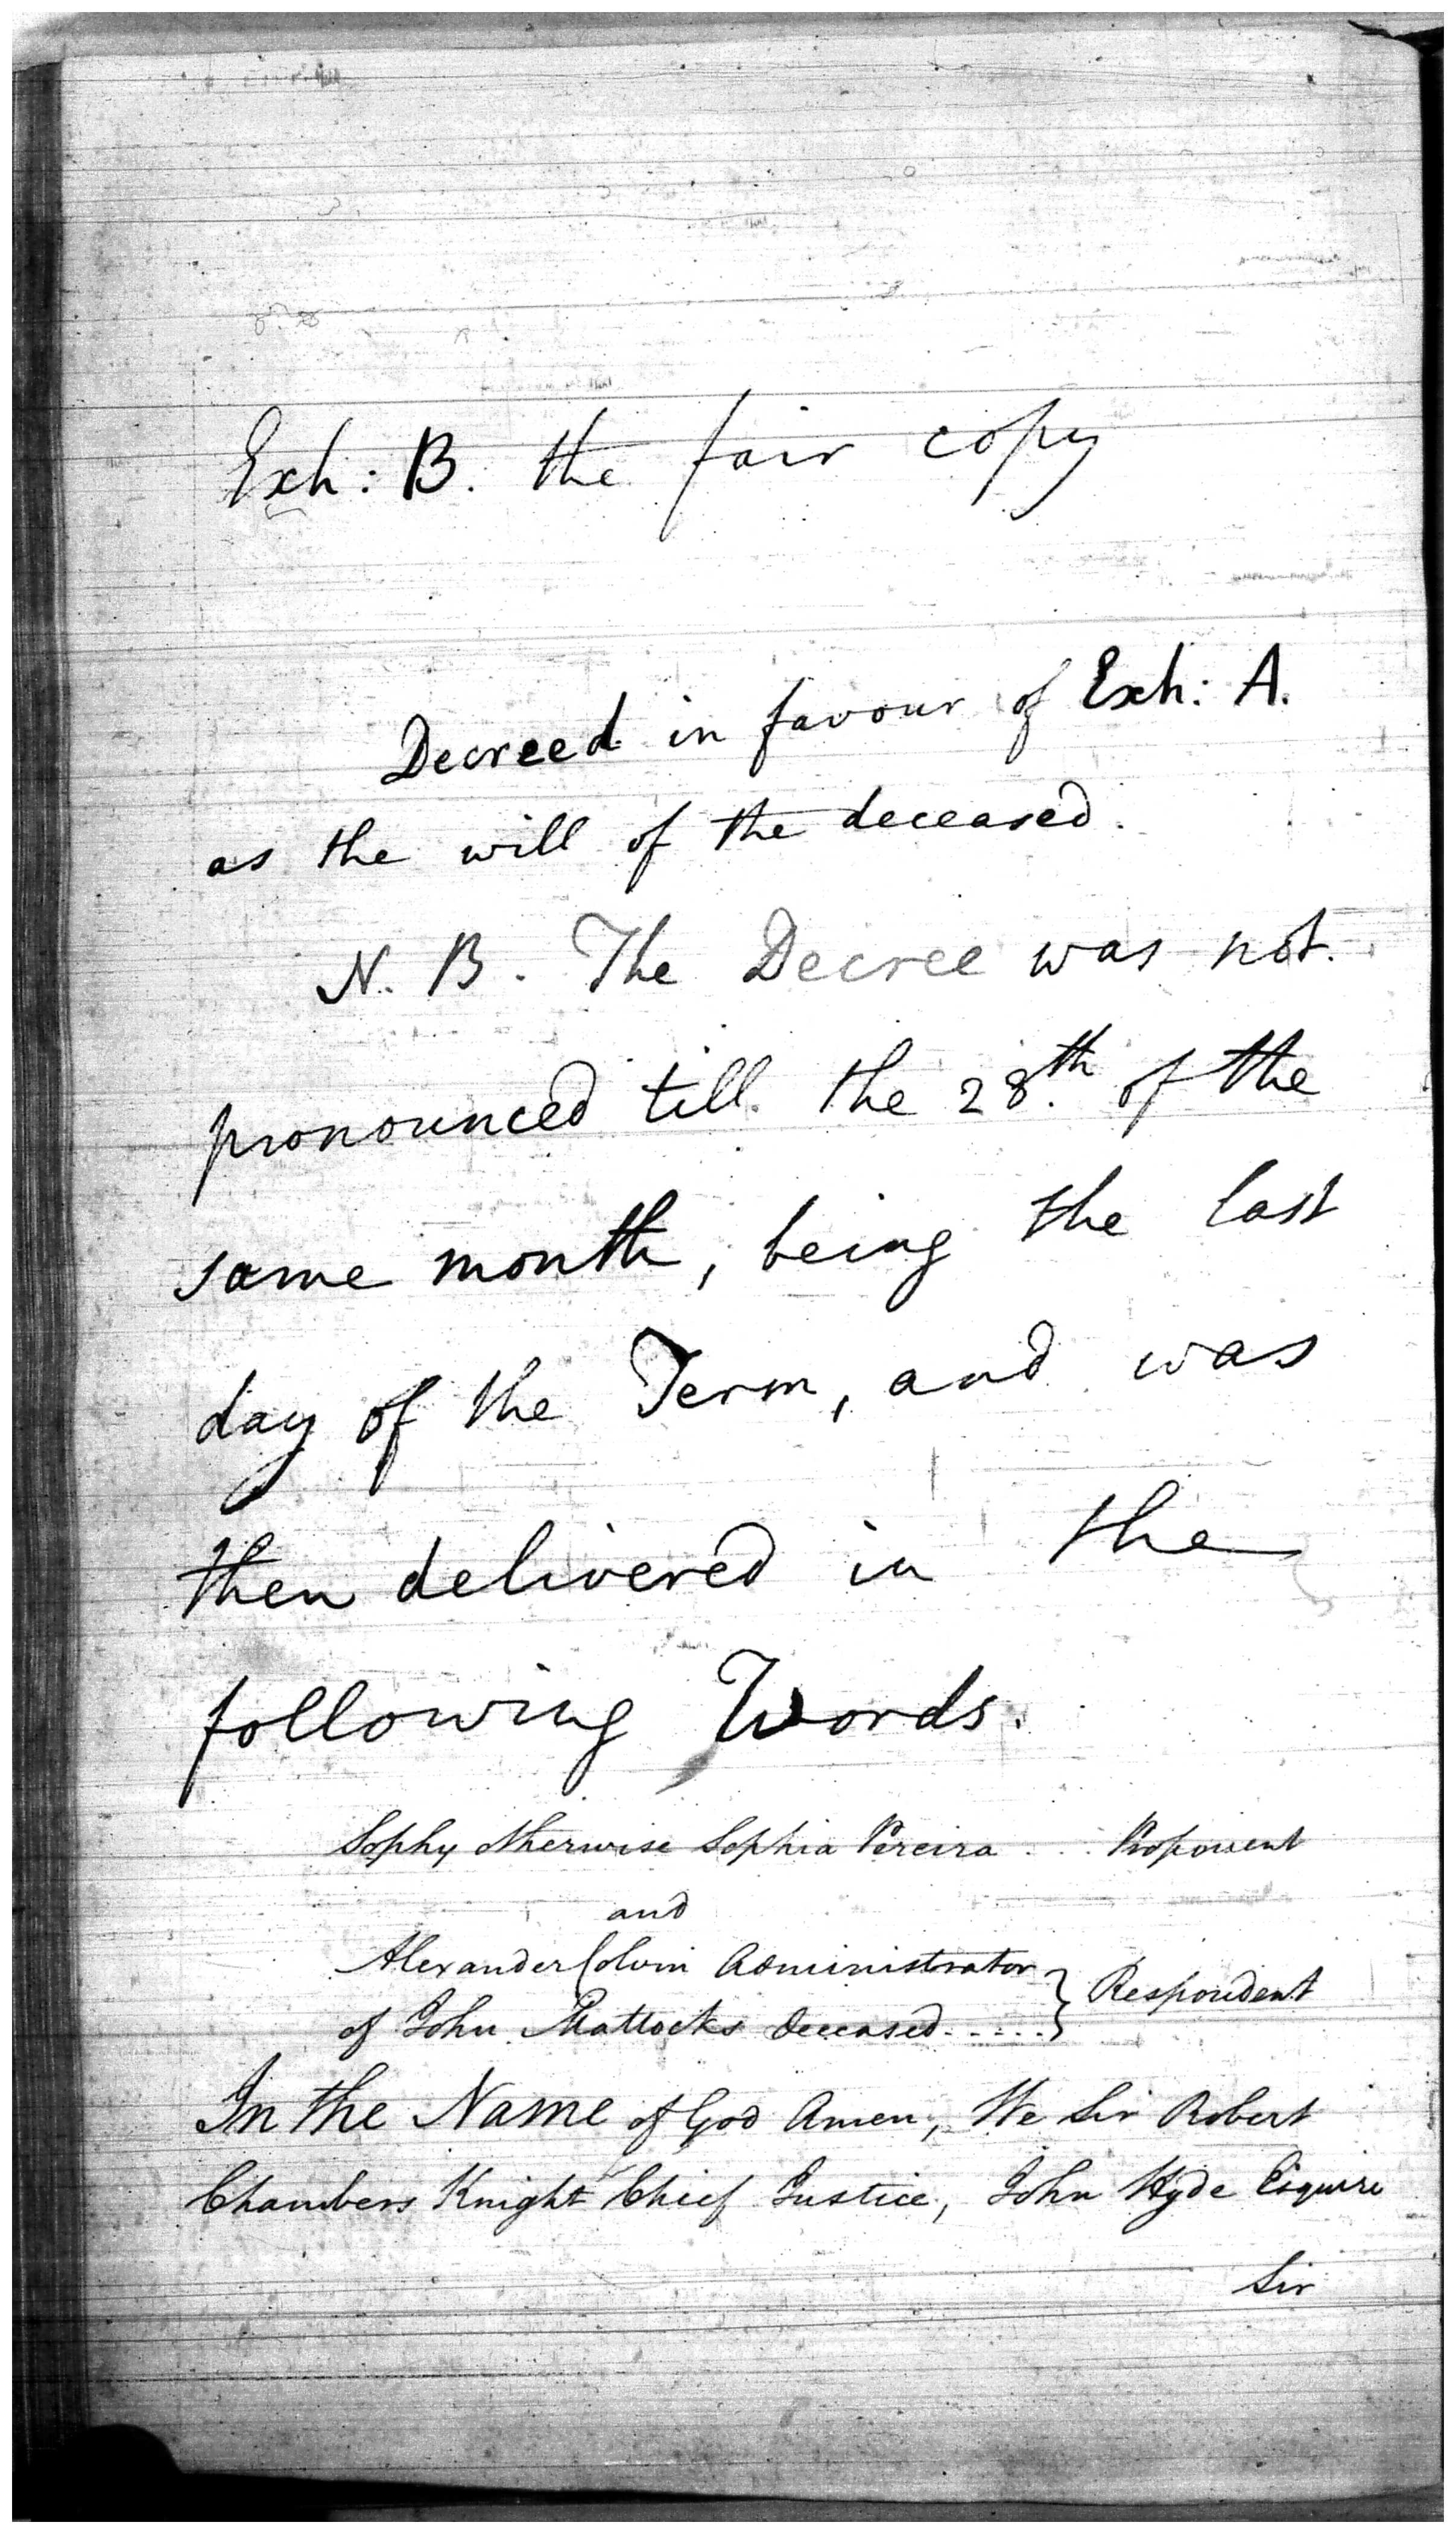 Exh: B. the fair copy
Decreed in favour of Exh: A.
as the will of the deceased.
N. B. The Decree was not
pronounced till the 28th of the
same month, being the last
day of the Term, and was
then delivered in the
following Words.
Sophy otherwise Sophia Pereira . . . Proponent
and
Alexander Colvin Administrator
of John Mattocks deceased . . . . . } Respondent
In the Name of God Amen, We Sir Robert
Chambers Knight Chief Justice, John Hyde Esquire
Sir